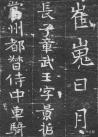 崔嵬日月
長子童武王字景招
當州都督侍中車騎